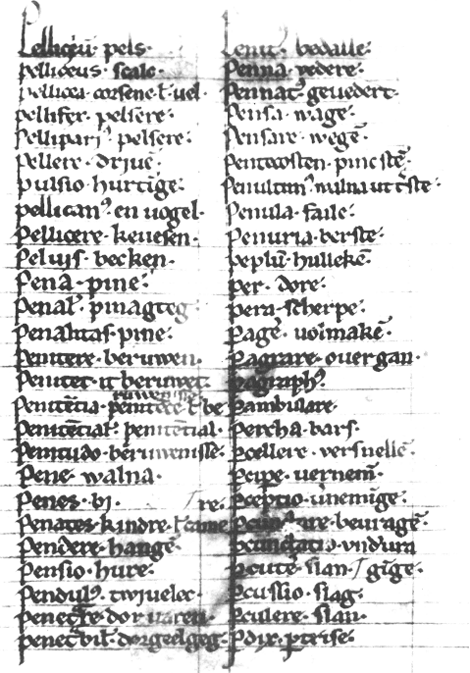 Pelliciu̅ · pels ·
pelliceus · scalc ·
pellicea · corsene · ł · uel ·
pellifer · pelsere :
Pellipari⁹ pelsere :
Pellere · driue :
pulsio hurtige :
pellican⁹ · en uogel ·
Pellicere · keuesen ·
Peluis · becken ·
Pena · pine :
Penal' · pinagteg
Penalitas · pine :
Penitere · beruwen ·
Penitet · it beruwet :
Penite̅cia · penitere · ł · be
Penite̅cial' · penite̅cial ·
Penitudo · beruwenisse :
Pene · walna ·
Penes · bi ·
Penates · kindre · ł
Pendere · hange̅
Pensio · hure :
Pendul⁹ · twiuelec ·
penet̅re · dor uaren ·
penet̅bil' · dorgeelgeg ·
Penna · vedere :
Pennat⁹ · geuedert ·
Pensa · wage :
Pensare · wege̅ ·
Pentecosten · pincste̅ ·
Penultim⁹ · walna ut
Penula · faile :
Penuria · berste :
peplu̅ · hulleke̅ ·
per · dore :
pera · scherpe :
Page̅ · uolmake̅ ·
Pagrare · ouergan ·
pagraph⁹ :
Pambulare ·
Percha · bars ·
Pcellere · versnelle̅ ·
Pcipe · uernem̅ :
Pceptio · uneminge :
are · beurage̅ ·
Pcunctatio · vndum
Pcute̅ · slan ·
Pcussio · slag ·
Pculere · slan ·
Pdix · ptrise :